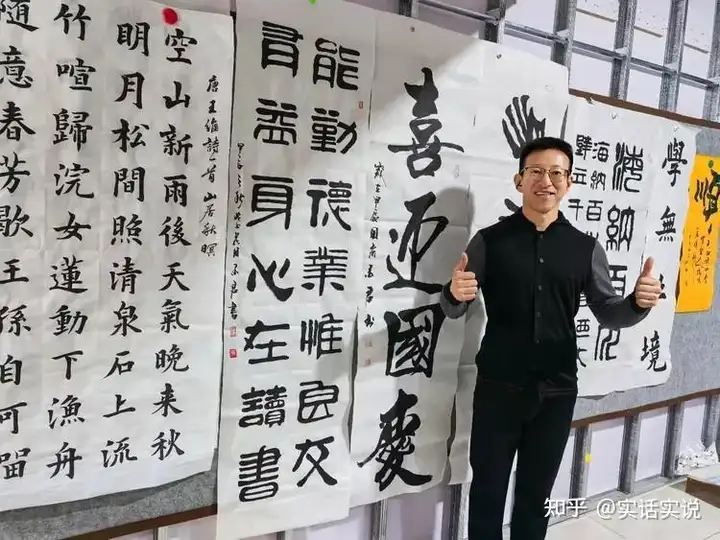 唐王維詩一首山居秋暝
空山新雨後天氣晚来秋
明月松間照清泉石上流
竹喧歸浣女蓮動下漁舟
隨意春芳歇王孫自可留
能勤德業惟良友
有益身心在讀書
喜迎國慶
學無止境
海納百川
海納百
壁立千
知乎 @实话实说